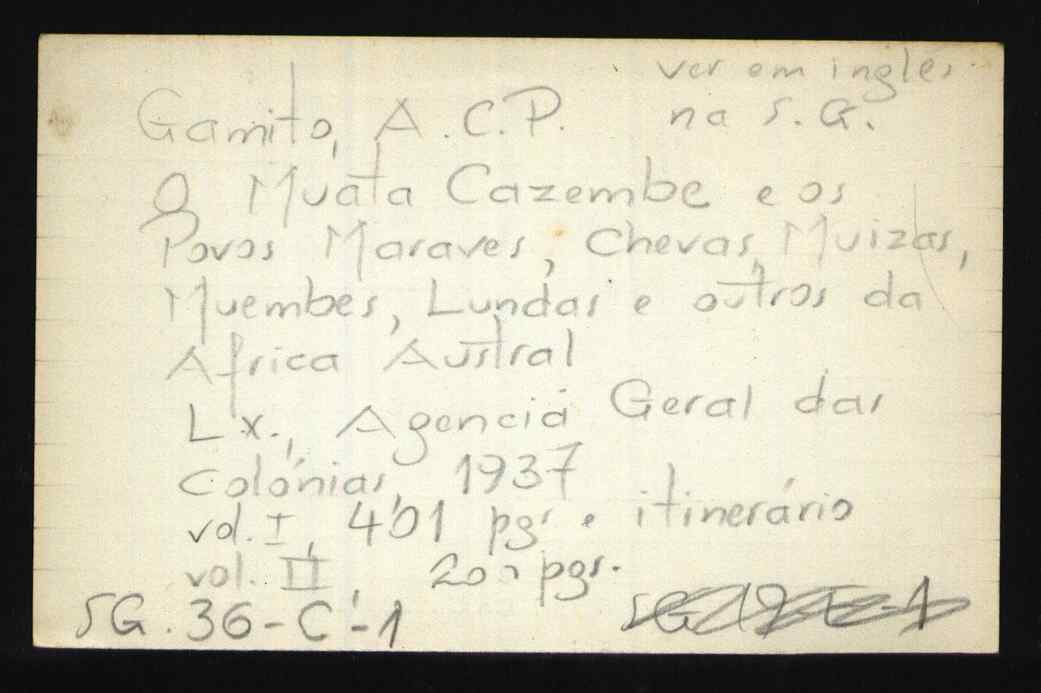 ver em inglês
na S.G.
Gamito, A.C.P.
O Muata Cazembe e os
Povos Maraves, Chevas, Muizas,
Muembes, Lundas e outros da
Africa Austral
Lx., Agencia Geral das
Colónias, 1937
vol. I, 401 pgs e itinerário
vol. II, 200 pgs.
SG. 36-C-1